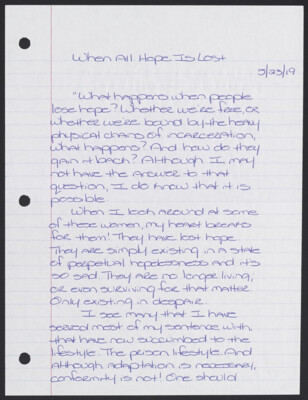 When All Hope Is Lost
5/23/19
"What happens when people
lose hope? Whether we're free, or
whether we're bound by the heavy
physical chains of incarceration,
what happens? And how do they
gain it back? Although I may
not have the answer to that
question, I do know that it is
possible.
When I look around at some
of these women, my heart breaks
for them! They have lost hope.
They are simply existing in a state
of perpetual hopelessness and it's
so sad. They are no longer living,
or even surviving for that matter.
Only existing in despair.
I see many that I have
served most of my sentence with,
that have now succumbed to the
lifestyle. The prison lifestyle. And
although adaptation is necessary,
conformity is not! One should